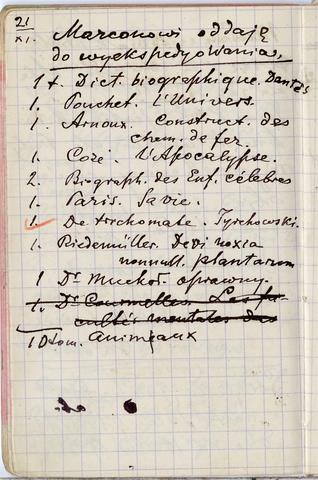 21
XI. Marconowi oddaję
do wyekspedyowania,
1 t. Dict. biographique. Dantès
1. Pouchet. l'Univers
1. Arnoux. Construct. des
chem. de fer.
1. Cozé. l'Apocalypse.
2. Biograph. des Enf. célèbres
1. Paris. Sa vie.
1. De trichomate. Tyrchowski.
1. Riedemüller. De vi noxia
nonnull. plantarum
1 Dr oprawny.
1. Dr Courmelles. Les fa-
cultés mentales des
10 tom. animeaux